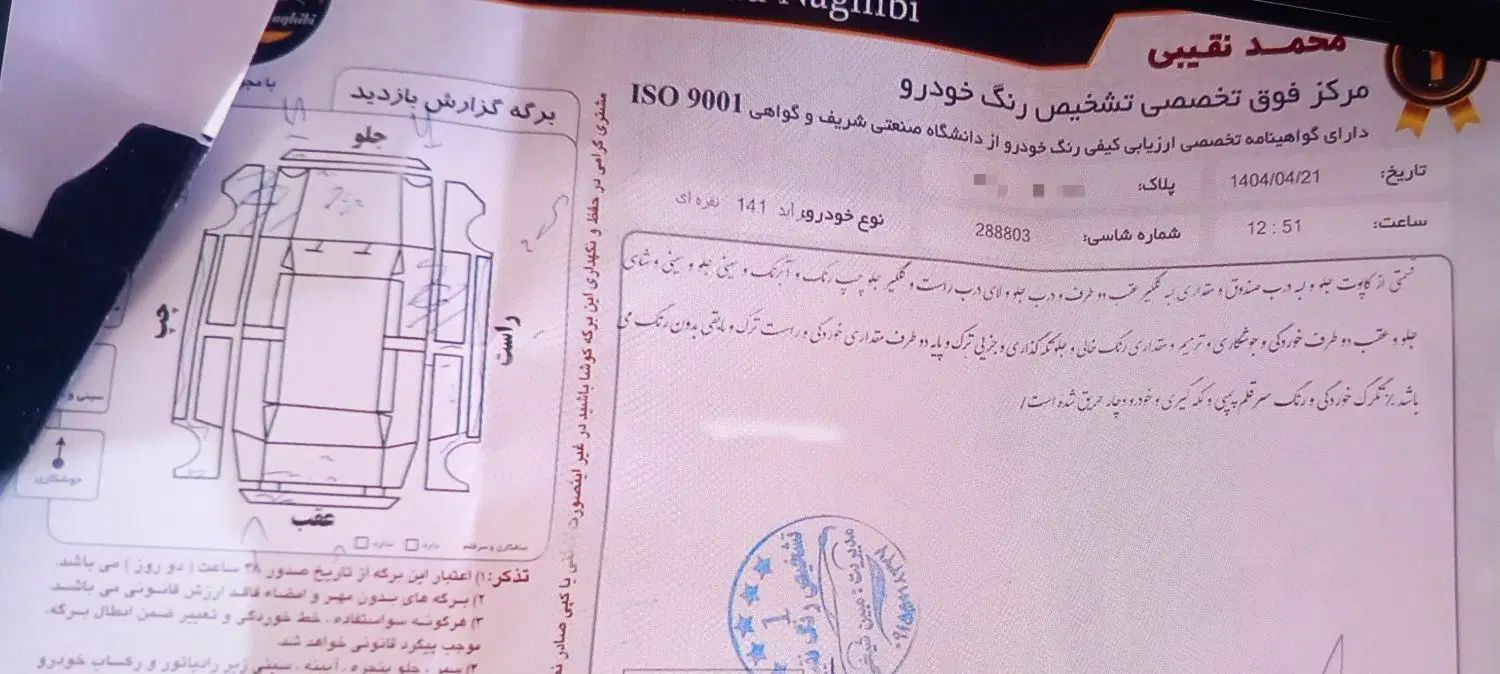 Naghibi
محمد نقیبی
مرکز فوق تخصصی تشخیص رنگ خودرو
دارای گواهینامه تخصصی ارزیابی کیفی رنگ خودرو از دانشگاه صنعتی شریف و گواهی ISO 9001
تاریخ: 1404/04/21 پلاک:
ساعت: 12 : 51 شماره شاسی: 288803 نوع خودرو: 141 نقره ای
قسمتی از کاپوت جلو و لبه درب صندوق و مقداری لبه گلگیر عقب دو طرف و درب جلو و لای درب راست و گلگیر جلو چپ رنگ و آبرنگ و سینی جلو و سینی و شاسی
جلو و عقب دو طرف خوردگی و جوشکاری و ترمیم و مقداری رنگ خالی و جلو تکه گذاری و جزیی ترک و پایه دو طرف مقداری خوردگی و راست ترک و مابقی بدون رنگ می
باشد٪ تگرگ خوردگی و رنگ سر قلم پیسی و لکه گیری و خودرو دچار حریق شده است/
تشخیص رنگ
1
مدیریت: مبین
مشتری گرامی در حفظ و نگهداری این برگه کوشا باشید در غیر اینصورت
یا کپی صادر
naghibi
برگه گزارش بازدید
جلو
چپ
راست
عقب
سینی و
جوشکاری
صافکاری و سرقلم دارد ندارد
تذکر: ۱) اعتبار این برگه از تاریخ صدور ۴۸ ساعت ( دو روز ) می باشد.
۲) برگه های بدون مهر و امضاء فاقد ارزش قانونی می باشد.
۳) هرگونه سواستفاده ، خط خوردگی و تعییر ضمن ابطال برگه،
موجب پیگرد قانونی خواهد شد.
سپر ، جلو پنجره ، آیینه ، سینی زیر رادیاتور و رکاب خودرو